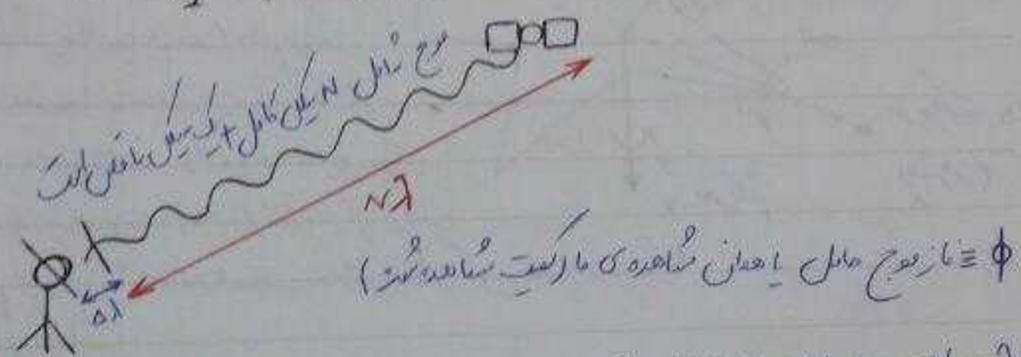 موج شامل N سیکل کامل + یک سیکل ناقص است
Nλ
Δλ
ϕ ≡ فاز موج حامل یا همان مشاهده‌ی ما (کمیت مشاهده شده)